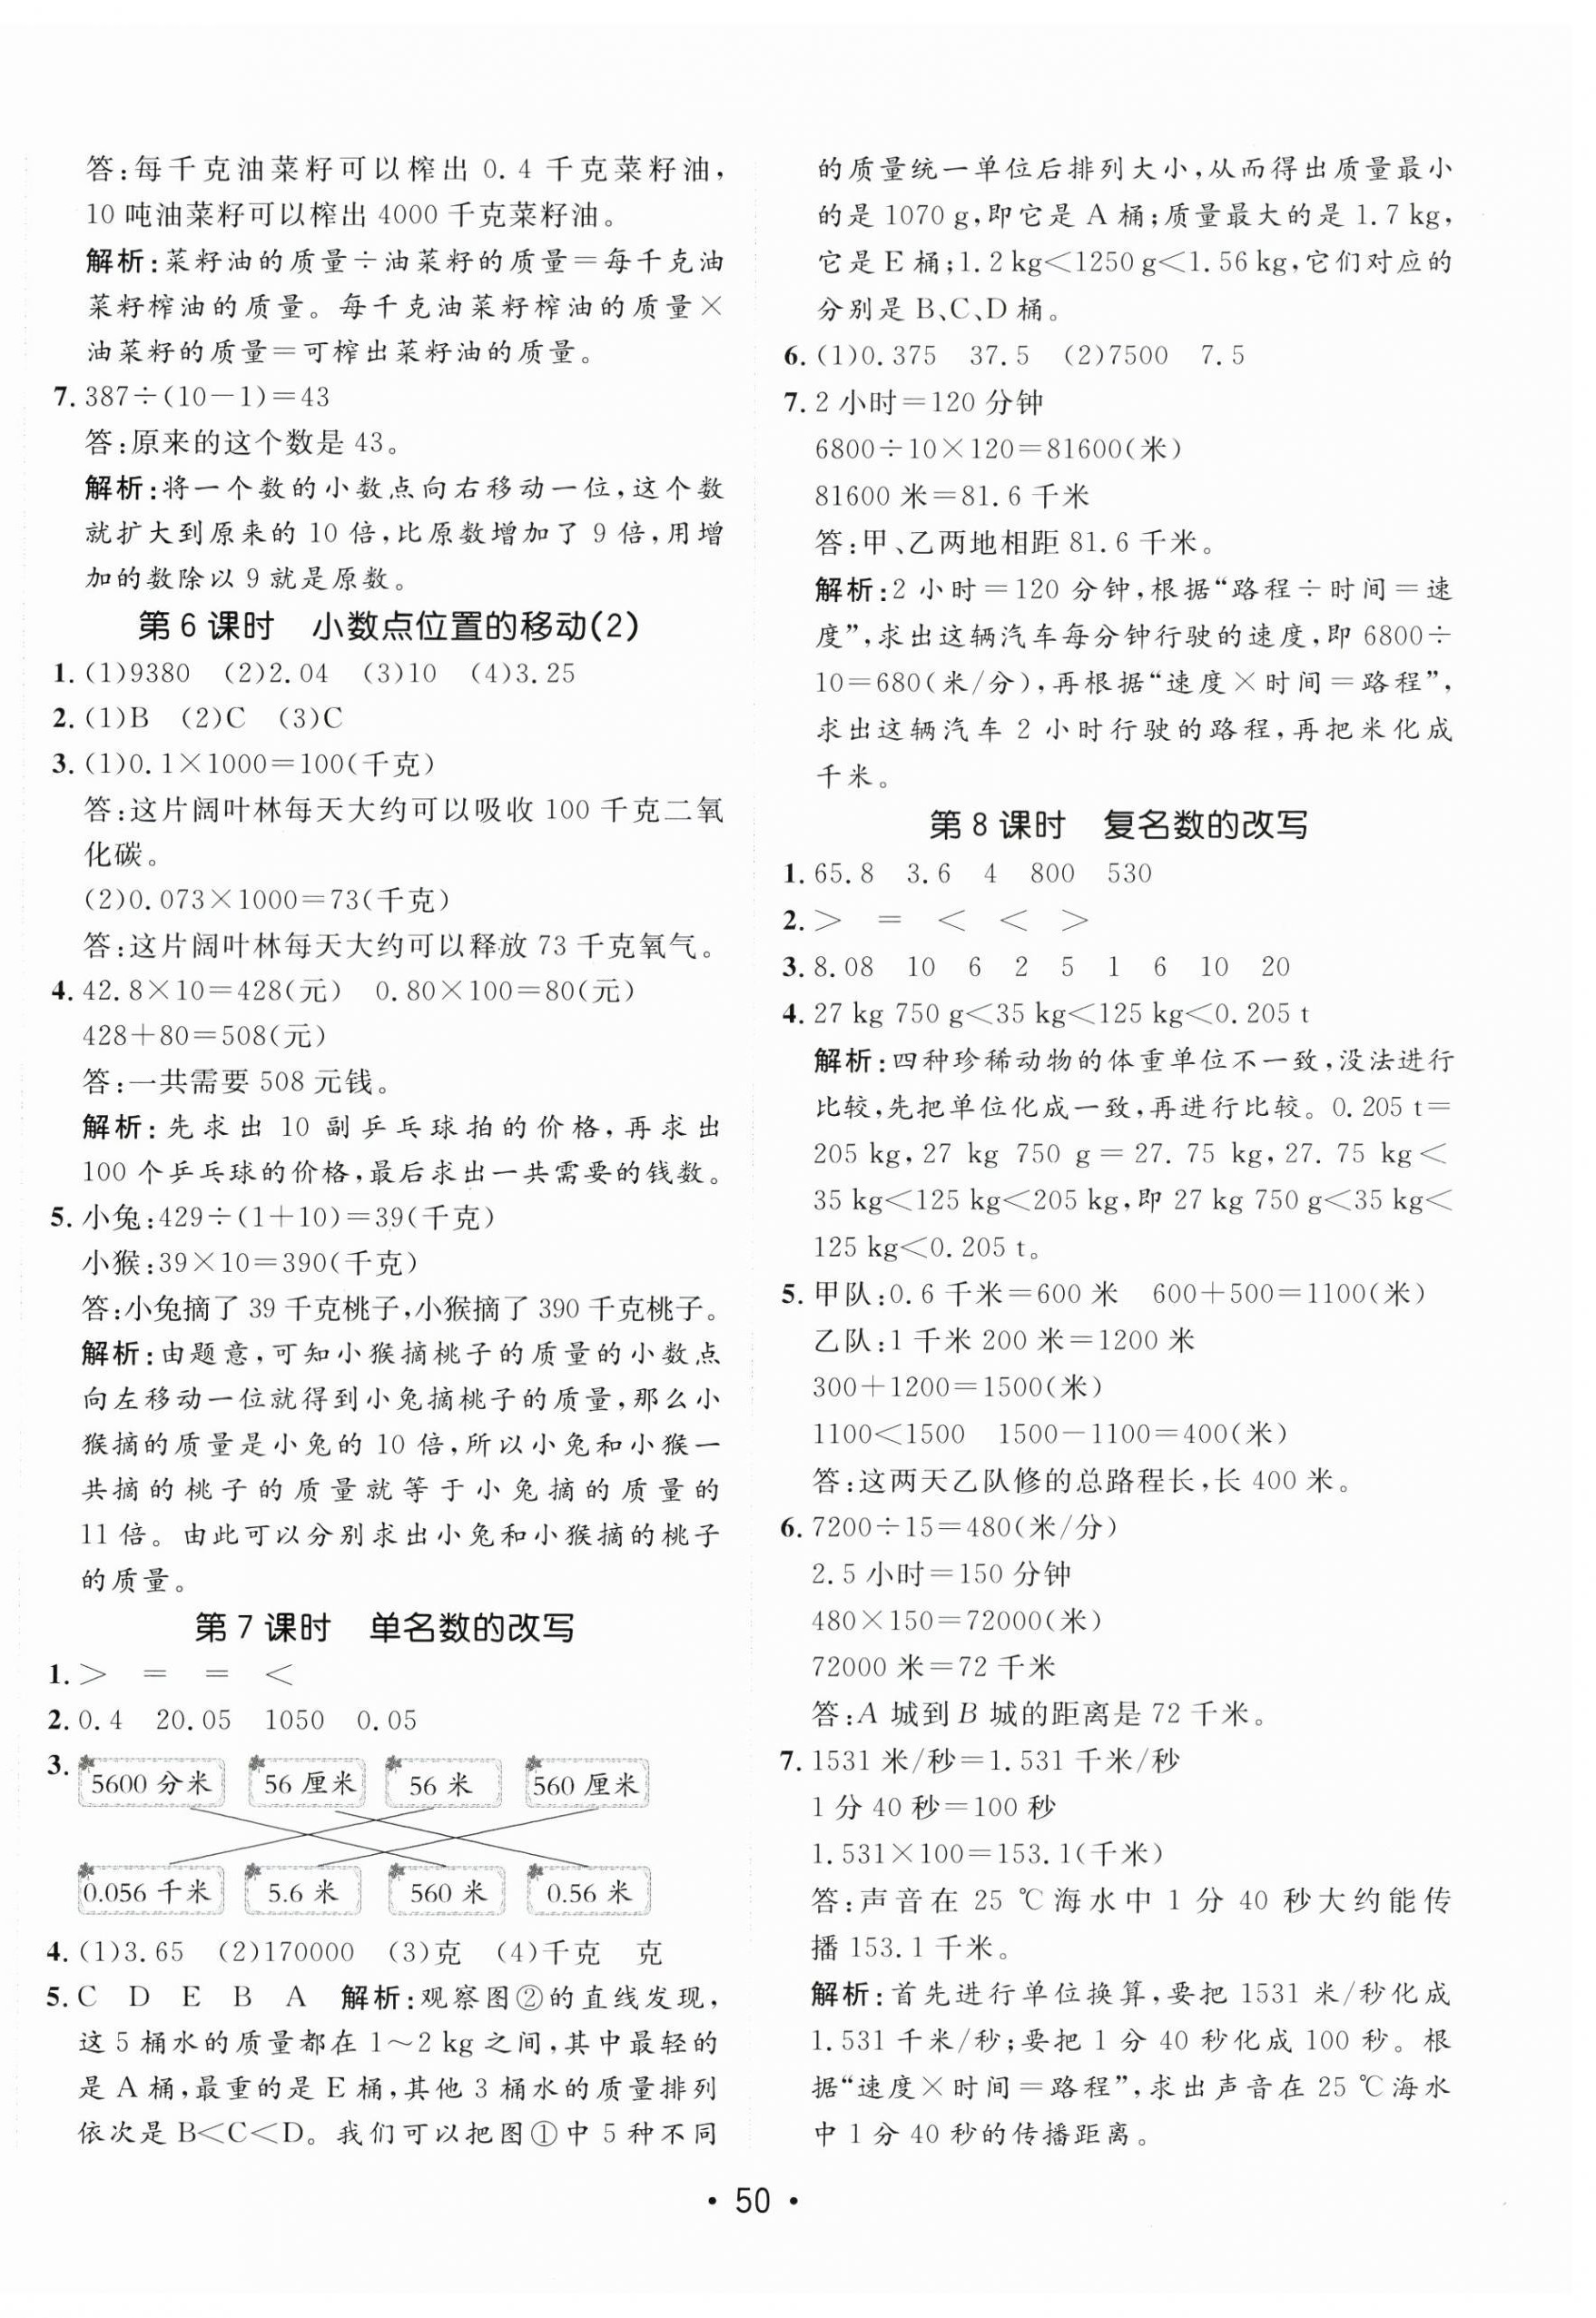 答:每千克油菜籽可以榨出 0.4 千克菜籽油,
10 吨油菜籽可以榨出 4000 千克菜籽油。
解析:菜籽油的质量÷油菜籽的质量=每千克油
菜籽榨油的质量。每千克油菜籽榨油的质量×
油菜籽的质量=可榨出菜籽油的质量。
7. 387÷(10-1)=43
答:原来的这个数是 43。
解析:将一个数的小数点向右移动一位,这个数
就扩大到原来的 10 倍,比原数增加了 9 倍,用增
加的数除以 9 就是原数。
第 6 课时 小数点位置的移动(2)
1. (1)9380 (2)2.04 (3)10 (4)3.25
2. (1)B (2)C (3)C
3. (1)0.1×1000=100(千克)
答:这片阔叶林每天大约可以吸收 100 千克二氧
化碳。
(2)0.073×1000=73(千克)
答:这片阔叶林每天大约可以释放 73 千克氧气。
4. 42.8×10=428(元) 0.80×100=80(元)
428+80=508(元)
答:一共需要 508 元钱。
解析:先求出 10 副乒乓球拍的价格,再求出
100 个乒乓球的价格,最后求出一共需要的钱数。
5. 小兔:429÷(1+10)=39(千克)
小猴:39×10=390(千克)
答:小兔摘了 39 千克桃子,小猴摘了 390 千克桃子。
解析:由题意,可知小猴摘桃子的质量的小数点
向左移动一位就得到小兔摘桃子的质量,那么小
猴摘的质量是小兔的 10 倍,所以小兔和小猴一
共摘的桃子的质量就等于小兔摘的质量的
11 倍。由此可以分别求出小兔和小猴摘的桃子
的质量。
第 7 课时 单名数的改写
1. > = = <
2. 0.4 20.05 1050 0.05
3. 5600 分米 56 厘米 56 米 560 厘米
0.056 千米 5.6 米 560 米 0.56 米
4. (1)3.65 (2)170000 (3)克 (4)千克 克
5. C D E B A 解析:观察图②的直线发现,
这 5 桶水的质量都在 1～2 kg 之间,其中最轻的
是 A 桶,最重的是 E 桶,其他 3 桶水的质量排列
依次是 B<C<D。我们可以把图①中 5 种不同
的质量统一单位后排列大小,从而得出质量最小
的是 1070 g,即它是 A 桶;质量最大的是 1.7 kg,
它是 E 桶;1.2 kg<1250 g<1.56 kg,它们对应的
分别是 B、C、D 桶。
6. (1)0.375 37.5 (2)7500 7.5
7. 2 小时=120 分钟
6800÷10×120=81600(米)
81600 米=81.6 千米
答:甲、乙两地相距 81.6 千米。
解析:2 小时=120 分钟,根据“路程÷时间=速
度”,求出这辆汽车每分钟行驶的速度,即 6800÷
10=680(米/分),再根据“速度×时间=路程”,
求出这辆汽车 2 小时行驶的路程,再把米化成
千米。
第 8 课时 复名数的改写
1. 65.8 3.6 4 800 530
2. > = < < >
3. 8.08 10 6 2 5 1 6 10 20
4. 27 kg 750 g<35 kg<125 kg<0.205 t
解析:四种珍稀动物的体重单位不一致,没法进行
比较,先把单位化成一致,再进行比较。0.205 t=
205 kg,27 kg 750 g=27.75 kg,27.75 kg<
35 kg<125 kg<205 kg,即 27 kg 750 g<35 kg<
125 kg<0.205 t。
5. 甲队:0.6 千米=600 米 600+500=1100(米)
乙队:1 千米 200 米=1200 米
300+1200=1500(米)
1100<1500 1500-1100=400(米)
答:这两天乙队修的总路程长,长 400 米。
6. 7200÷15=480(米/分)
2.5 小时=150 分钟
480×150=72000(米)
72000 米=72 千米
答:A 城到 B 城的距离是 72 千米。
7. 1531 米/秒=1.531 千米/秒
1 分 40 秒=100 秒
1.531×100=153.1(千米)
答:声音在 25 ℃海水中 1 分 40 秒大约能传
播 153.1 千米。
解析:首先进行单位换算,要把 1531 米/秒化成
1.531 千米/秒;要把 1 分 40 秒化成 100 秒。根
据“速度×时间=路程”,求出声音在 25 ℃海水
中 1 分 40 秒的传播距离。
· 50 ·